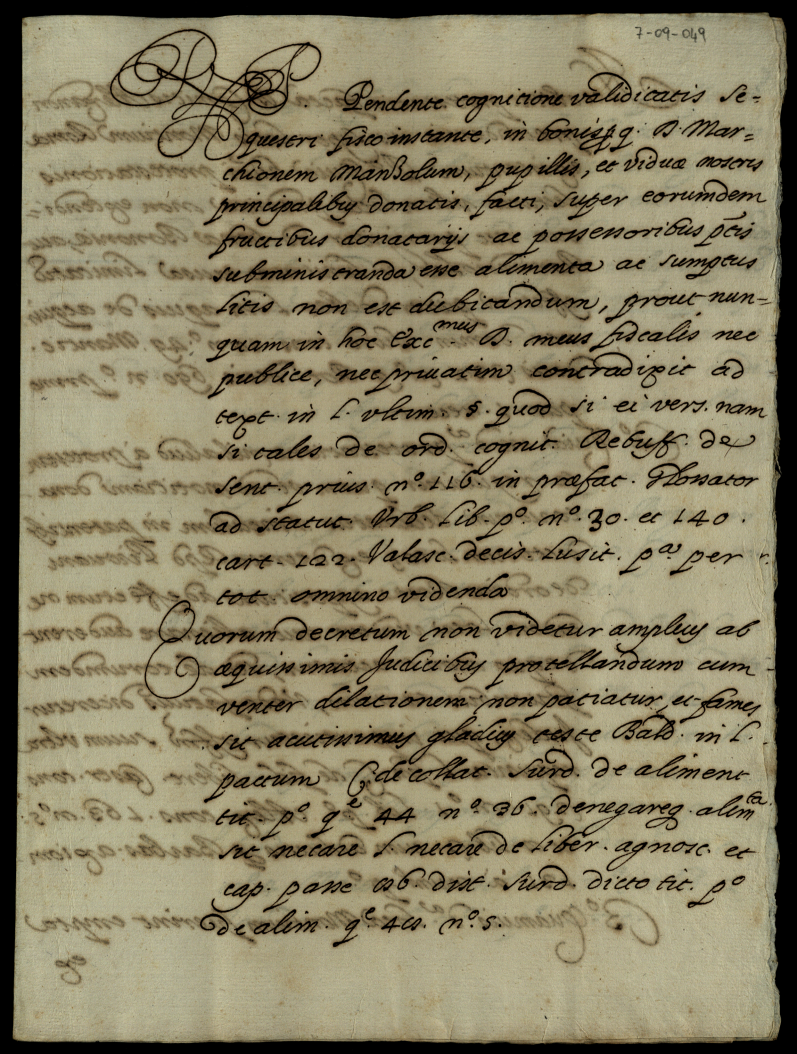 7-09-049
Pendente cognicione validicatis se=
questri fisco instante, in bonis p q. D. Mar=
chionem Manzolum, pupillis, et viduæ nostris
principalibus donatis, facti, super eorumdem
fructibus donatarijs ac possessoribus pctis
subministranda esse alimenta ac sumptus
litis non est dubitandum, prout nun=
quam in hoc Excmus D. meus fiscalis nec
publice, nec priuatim contradixit ad
text. in l. vltim. §. quod si ei vers. nam
si tales de ord. cognit. Rebuff. de
sent. prius. nº. 116. in præfac. Glossator
ad statut. Vrb. lib. pº. nº. 30. et 140.
cart. 122. Valasc. decis. Lusit. pª per
tot. omnino videnda
Quorum decretum non videtur amplius ab
æquissimis Judicibus protellandum cum
venter dilationem non patiatur, et fames
sit acutissimus gladius teste Bald. in l.
pactum C. de collat. Surd. de aliment
tit. pº. qe. 44 nº. 36. denegareq. alimta
sit necare l. necare de liber. agnosc. et
cap. pasce 86. dist. Surd. dicto tit. pº
de alim. qe. nº. 5.